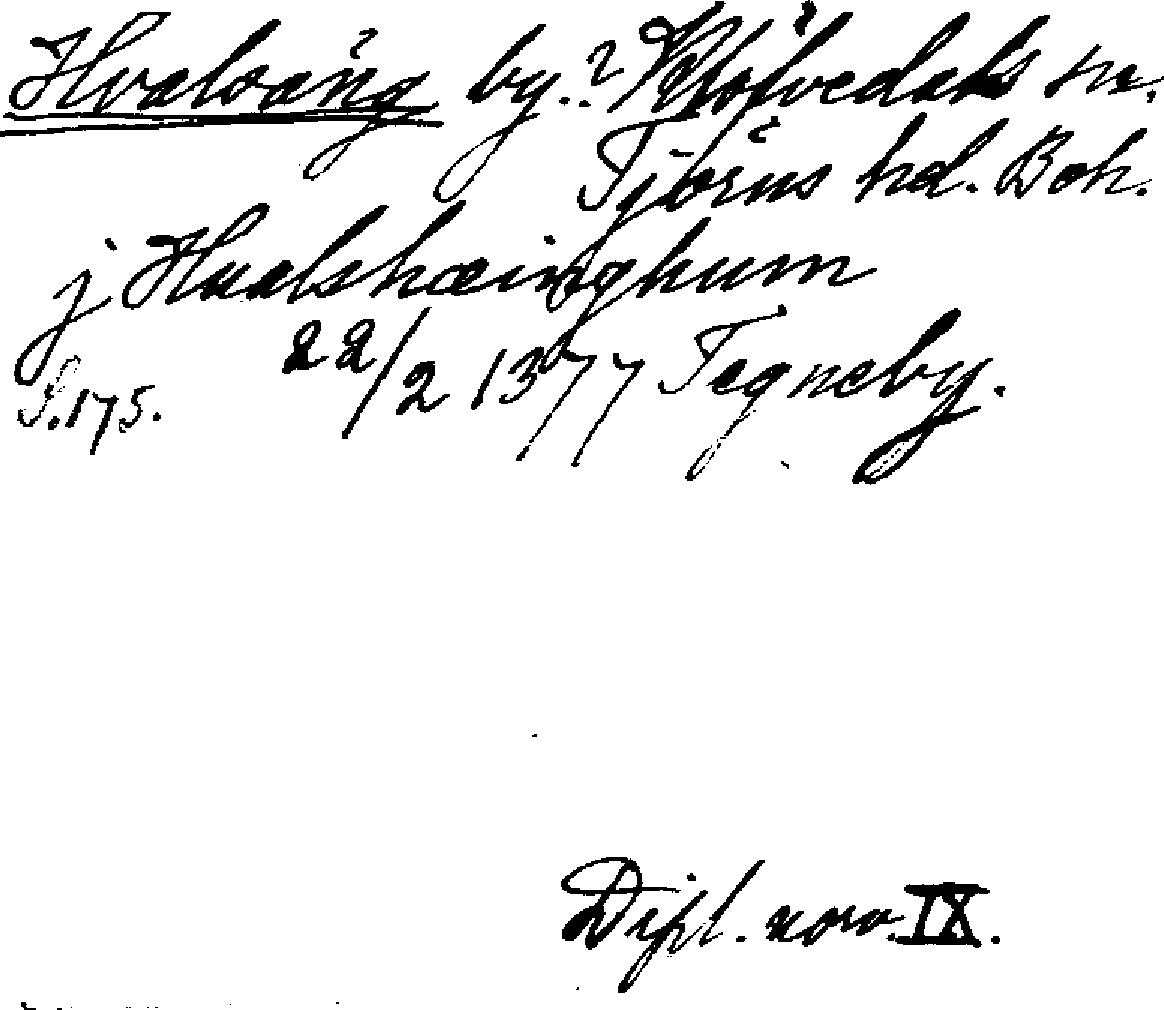 Hvalsäng by.? Klöfvedals sn.
Tjörns hd. Boh.
j Hualshæinghum
S. 175. 22/2 1377 Tegneby.
Dipl. norv. IX.